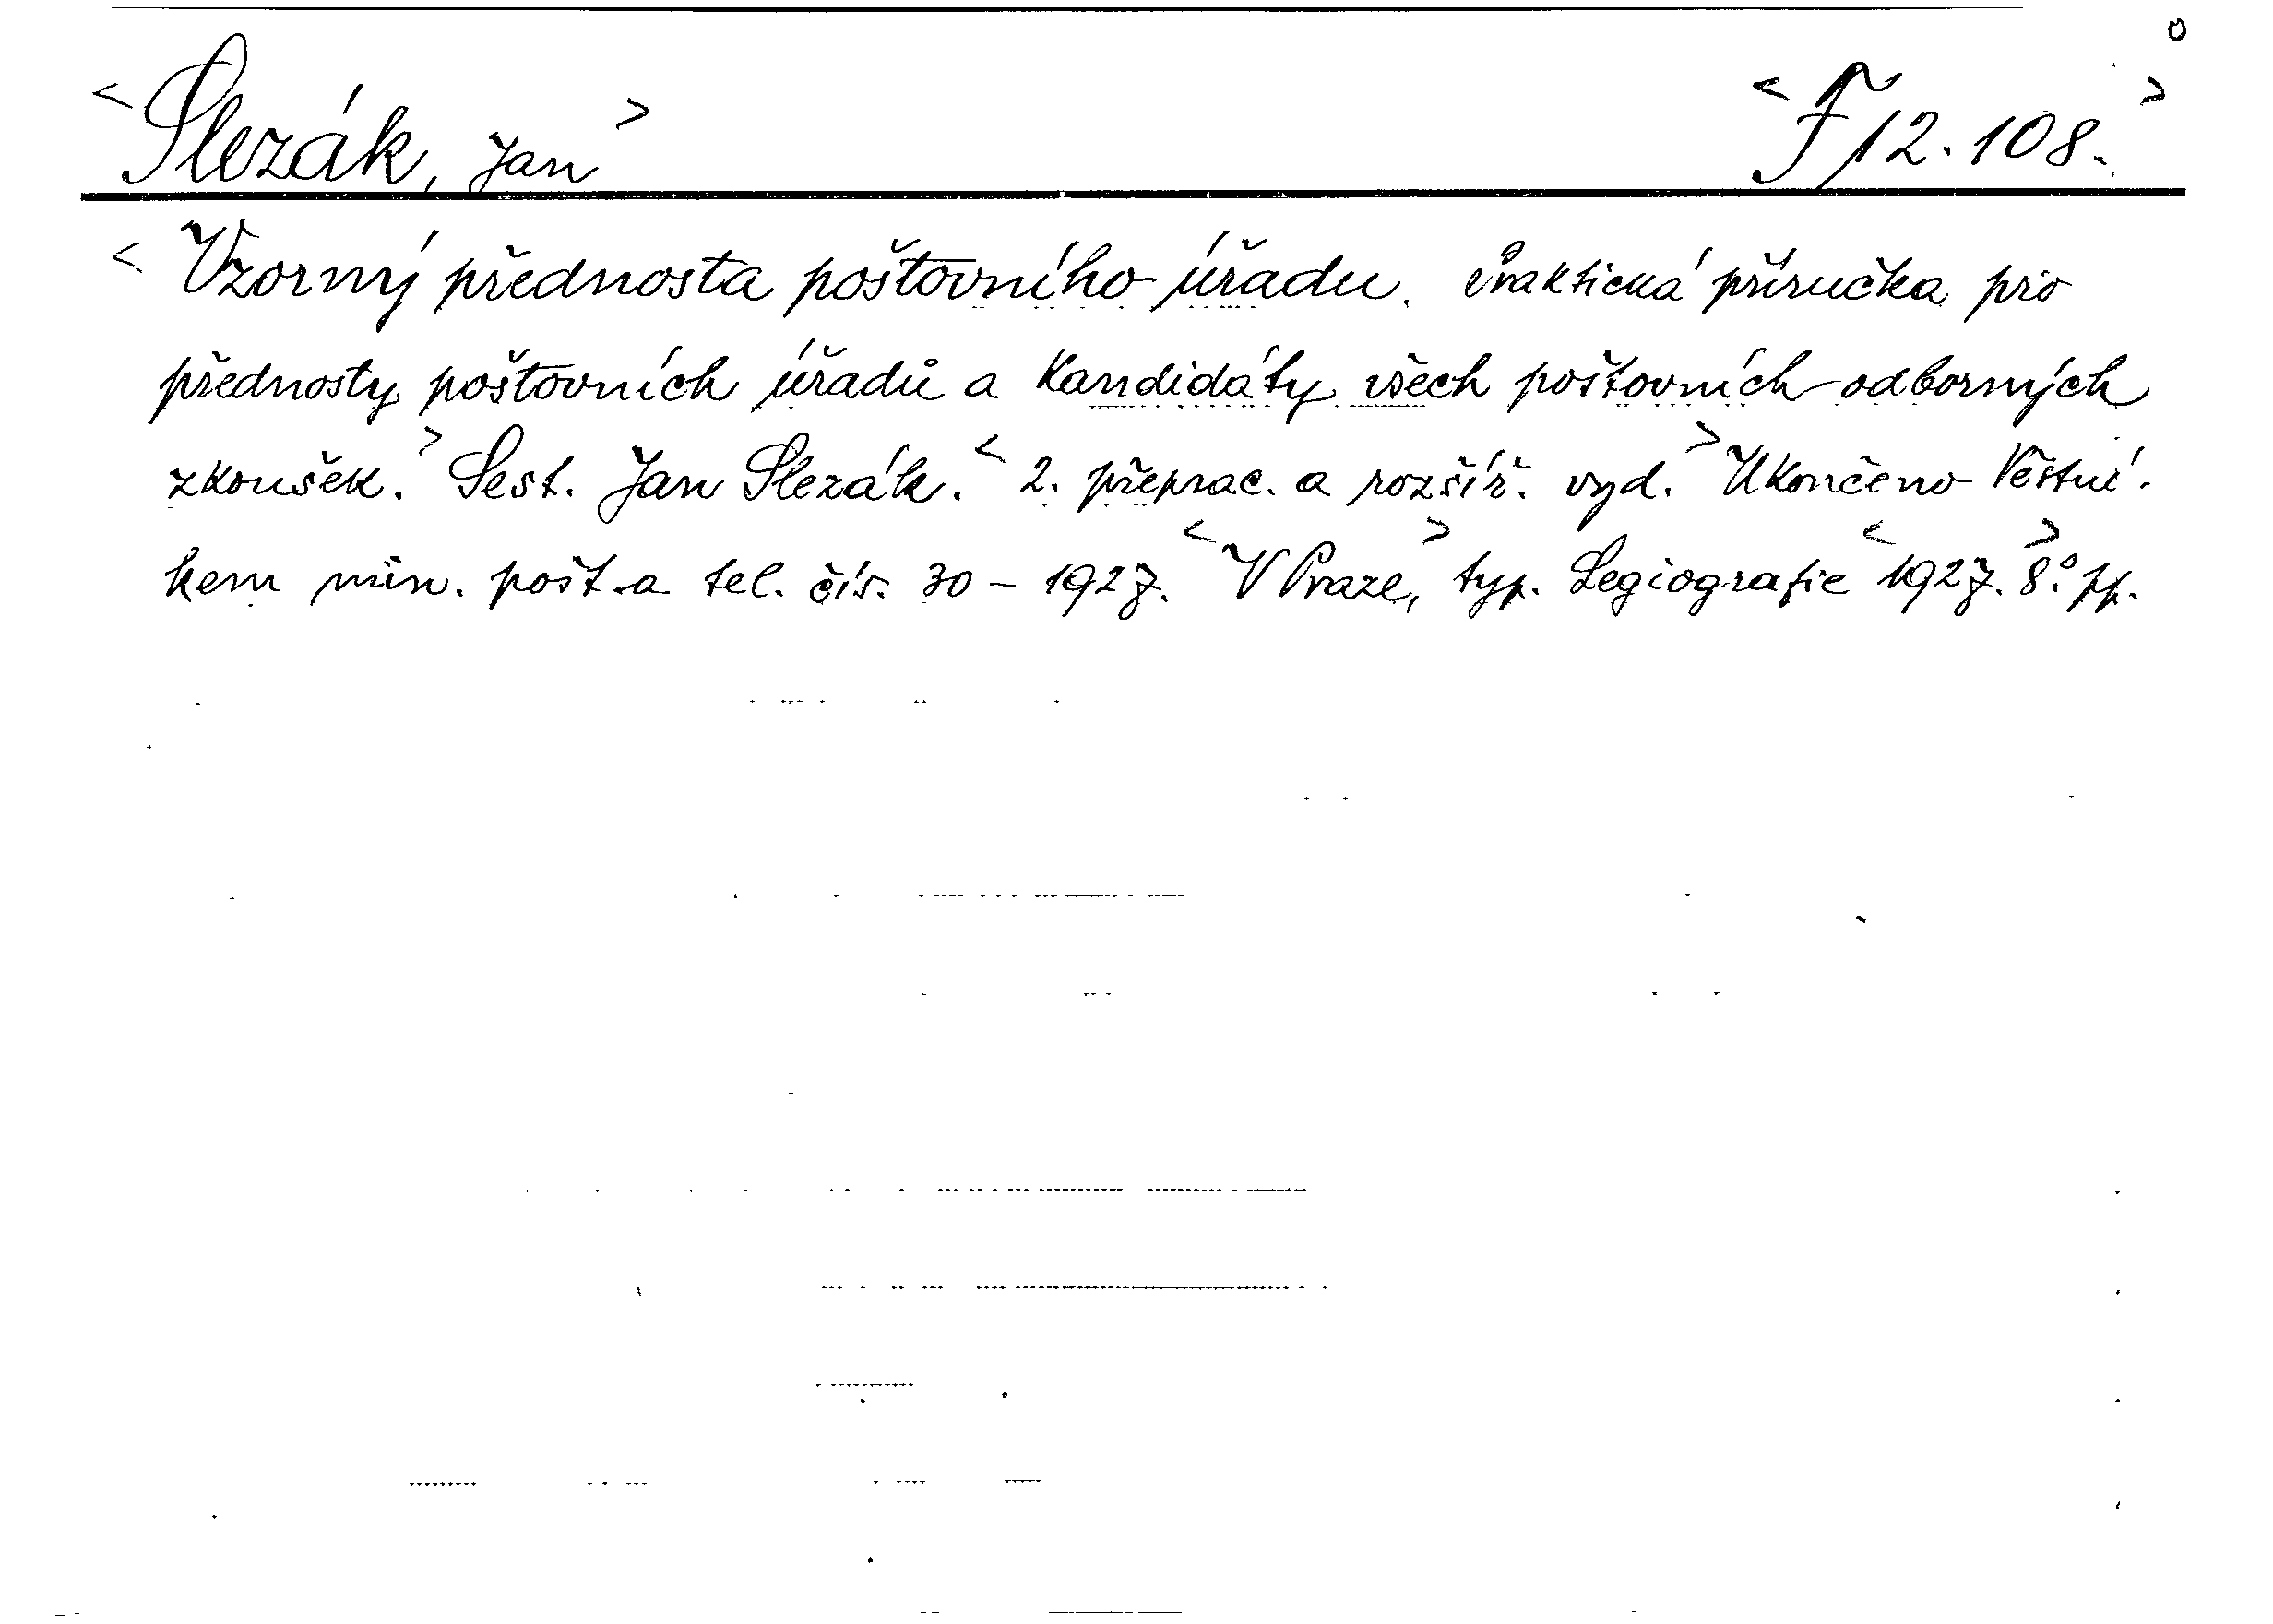 < Slezák, Jan > < F 12.108. >
< Vzorný přednosta poštovního úřadu. Praktická příručka pro
přednosty poštovních úřadů a kandidáty všech poštovních odborných
zkoušek. > Sest. Jan Slezák. < 2. přeprac. a rozšíř. vyd. > Ukončeno Věstní-
kem min. pošt a tel. čís. 30 – 1927. < V Praze, > typ. Legiografie < 1927. > 8° pp.